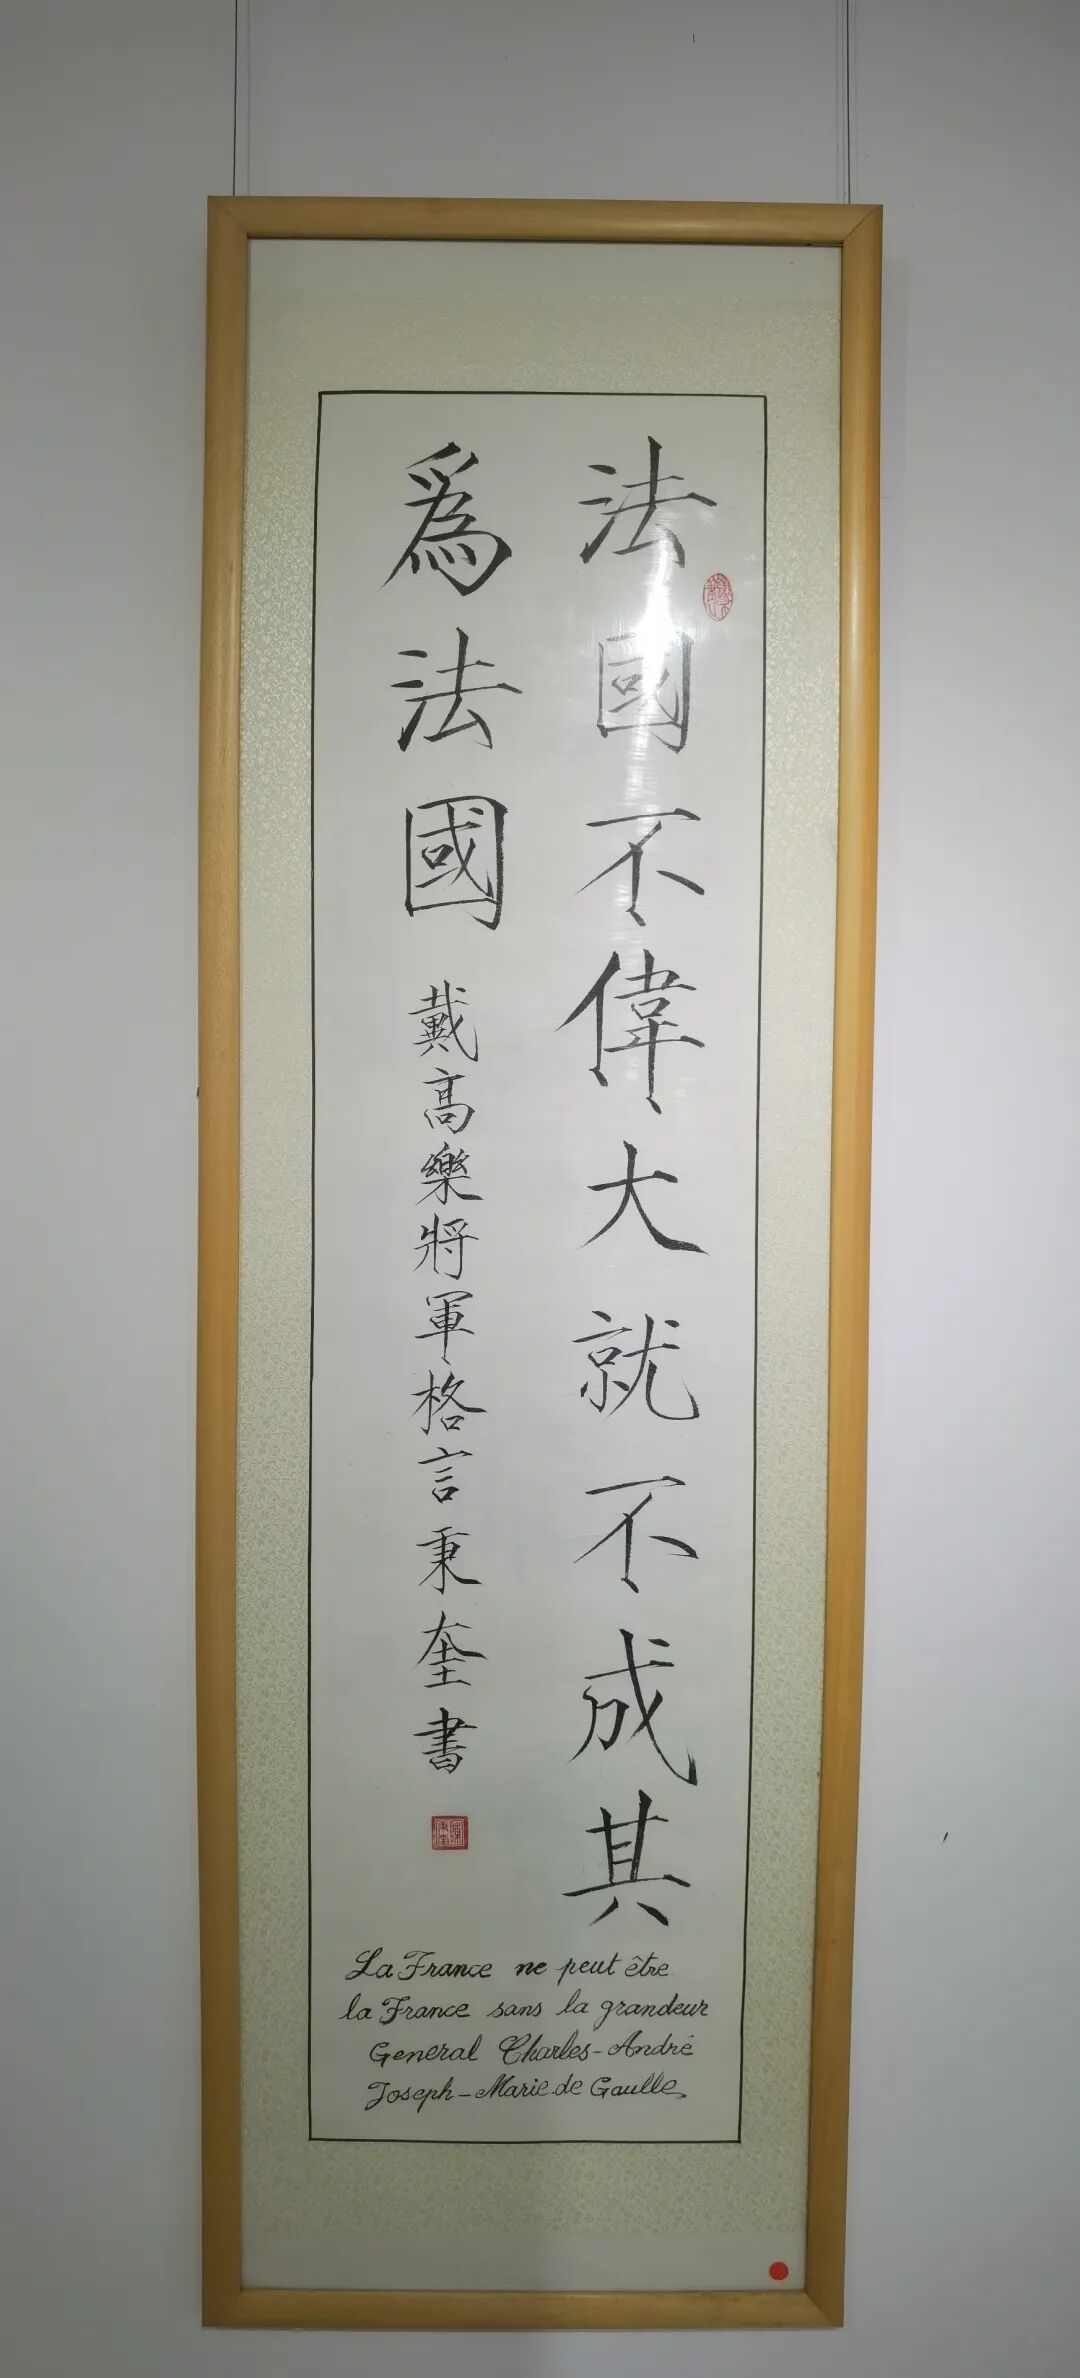 法國不偉大就不成其
爲法國
戴高樂將軍格言秉奎書
La France ne peut être
la France sans la grandeur
General Charles-André
Joseph-Marie de Gaulle